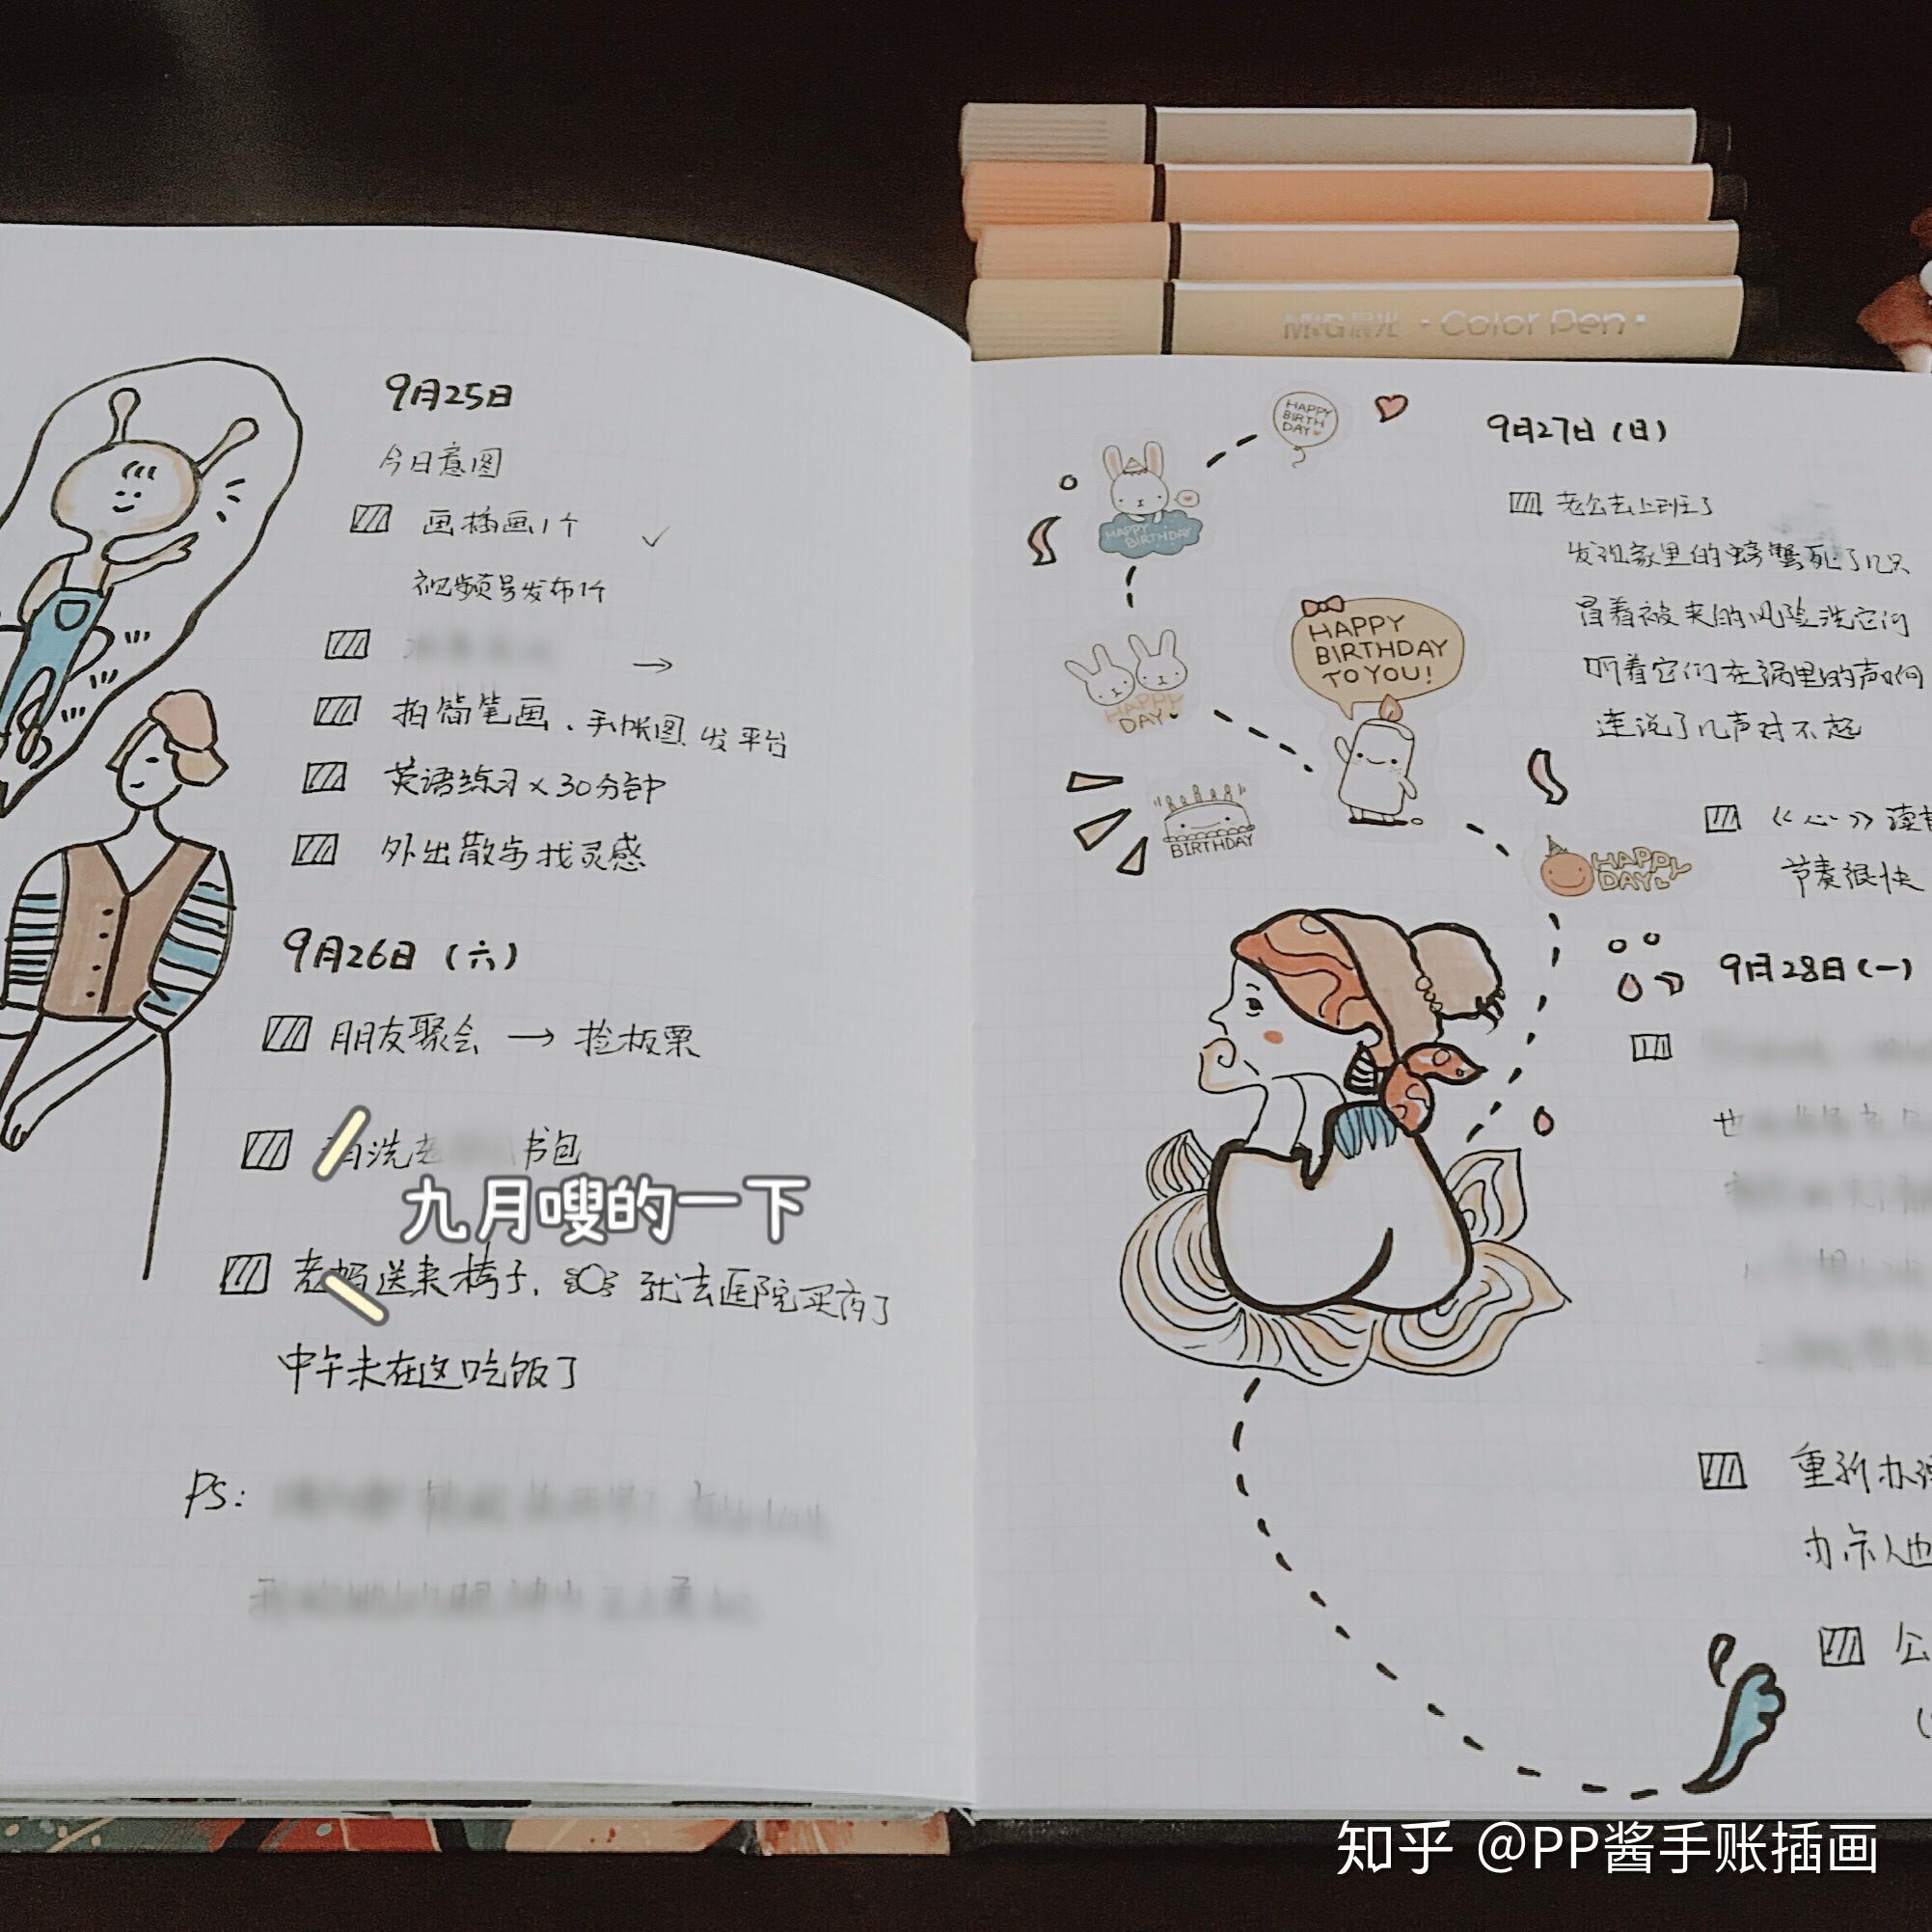 M&G晨光 · Color Pen ·
9月25日
今日意图
画插画1个 ✓
视频号发布1个
→
拍简笔画、手帐图 发平台
英语练习×30分钟
外出散步找灵感
9月26日（六）
朋友聚会 → 捡板栗
洗 书包
九月嗖的一下
老妈送来 子, 就去医院买药了
中午未在这吃饭了
PS:
HAPPY
BIRTH
DAY
HAPPY
BIRTHDAY
HAPPY
DAY
HAPPY
BIRTHDAY
TO YOU!
BIRTHDAY
HAPPY
DAY
9月27日（日）
老公去上班了
发现家里的螃蟹死了几只
冒着被夹的风险洗它们
听着它们在锅里的声响
连说了几声对不起
《心》读
节奏很快
9月28日（一）
也
重新办
办 人也
公
知乎 @PP酱手账插画